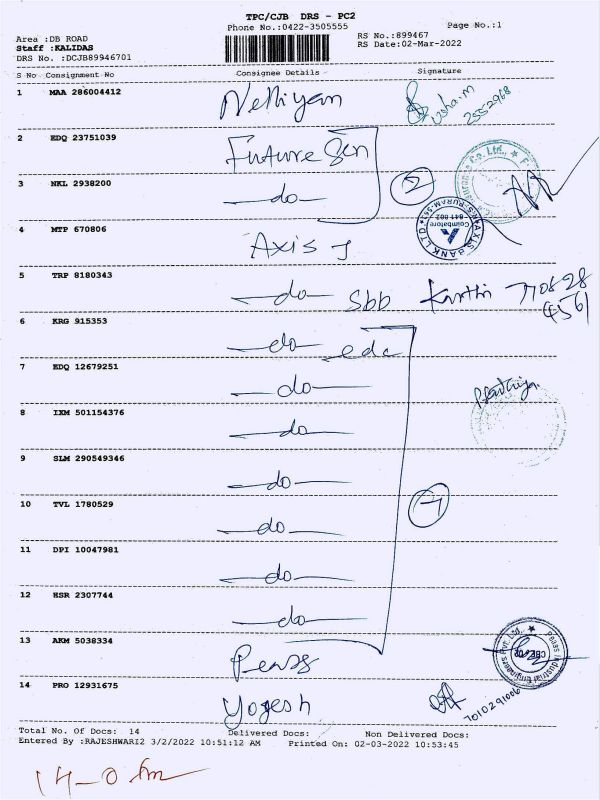 TPC/CJB DRS - PC2
Phone No.:0422-3505555
Page No.:1
Area :DB ROAD
RS No.:899467
Staff :KALIDAS
RS Date:02-Mar-2022
DRS No. :DCJB89946701
S No Consignment No Consignee Details Signature
1 MAA 286004412 Nethiyan Usha.m
2552968
2 EDQ 23751039 Future Gen
3 NKL 2938200 -do- 2
4 MTP 670806 Axis J
AXIS BANK LTD
Coimbatore
641 002
5 TRP 8180343 -do- Sbb Karthi 770828
4561
6 KRG 915353 -do- edc
7 EDQ 12679251 -do-
8 IXM 501154376 -do-
9 SLM 290549346 -do-
10 TVL 1780529 -do- 7
11 DPI 10047981 -do-
12 HSR 2307744 -do-
13 AKM 5038334 Peass
Peass Industrial Engineers Pvt. Ltd.
14 PRO 12931675 Yogesh 7010291006
Total No. Of Docs: 14 Delivered Docs: Non Delivered Docs:
Entered By :RAJESHWARI2 3/2/2022 10:51:12 AM Printed On: 02-03-2022 10:53:45